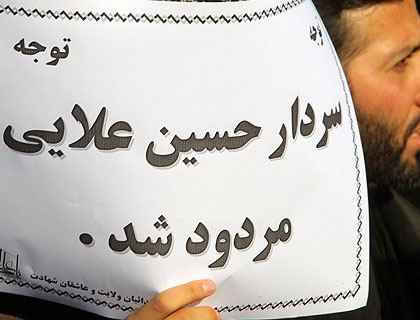 توجه توجه
سردار حسین علایی
مردود شد .
ولایت و عاشقان شهادت